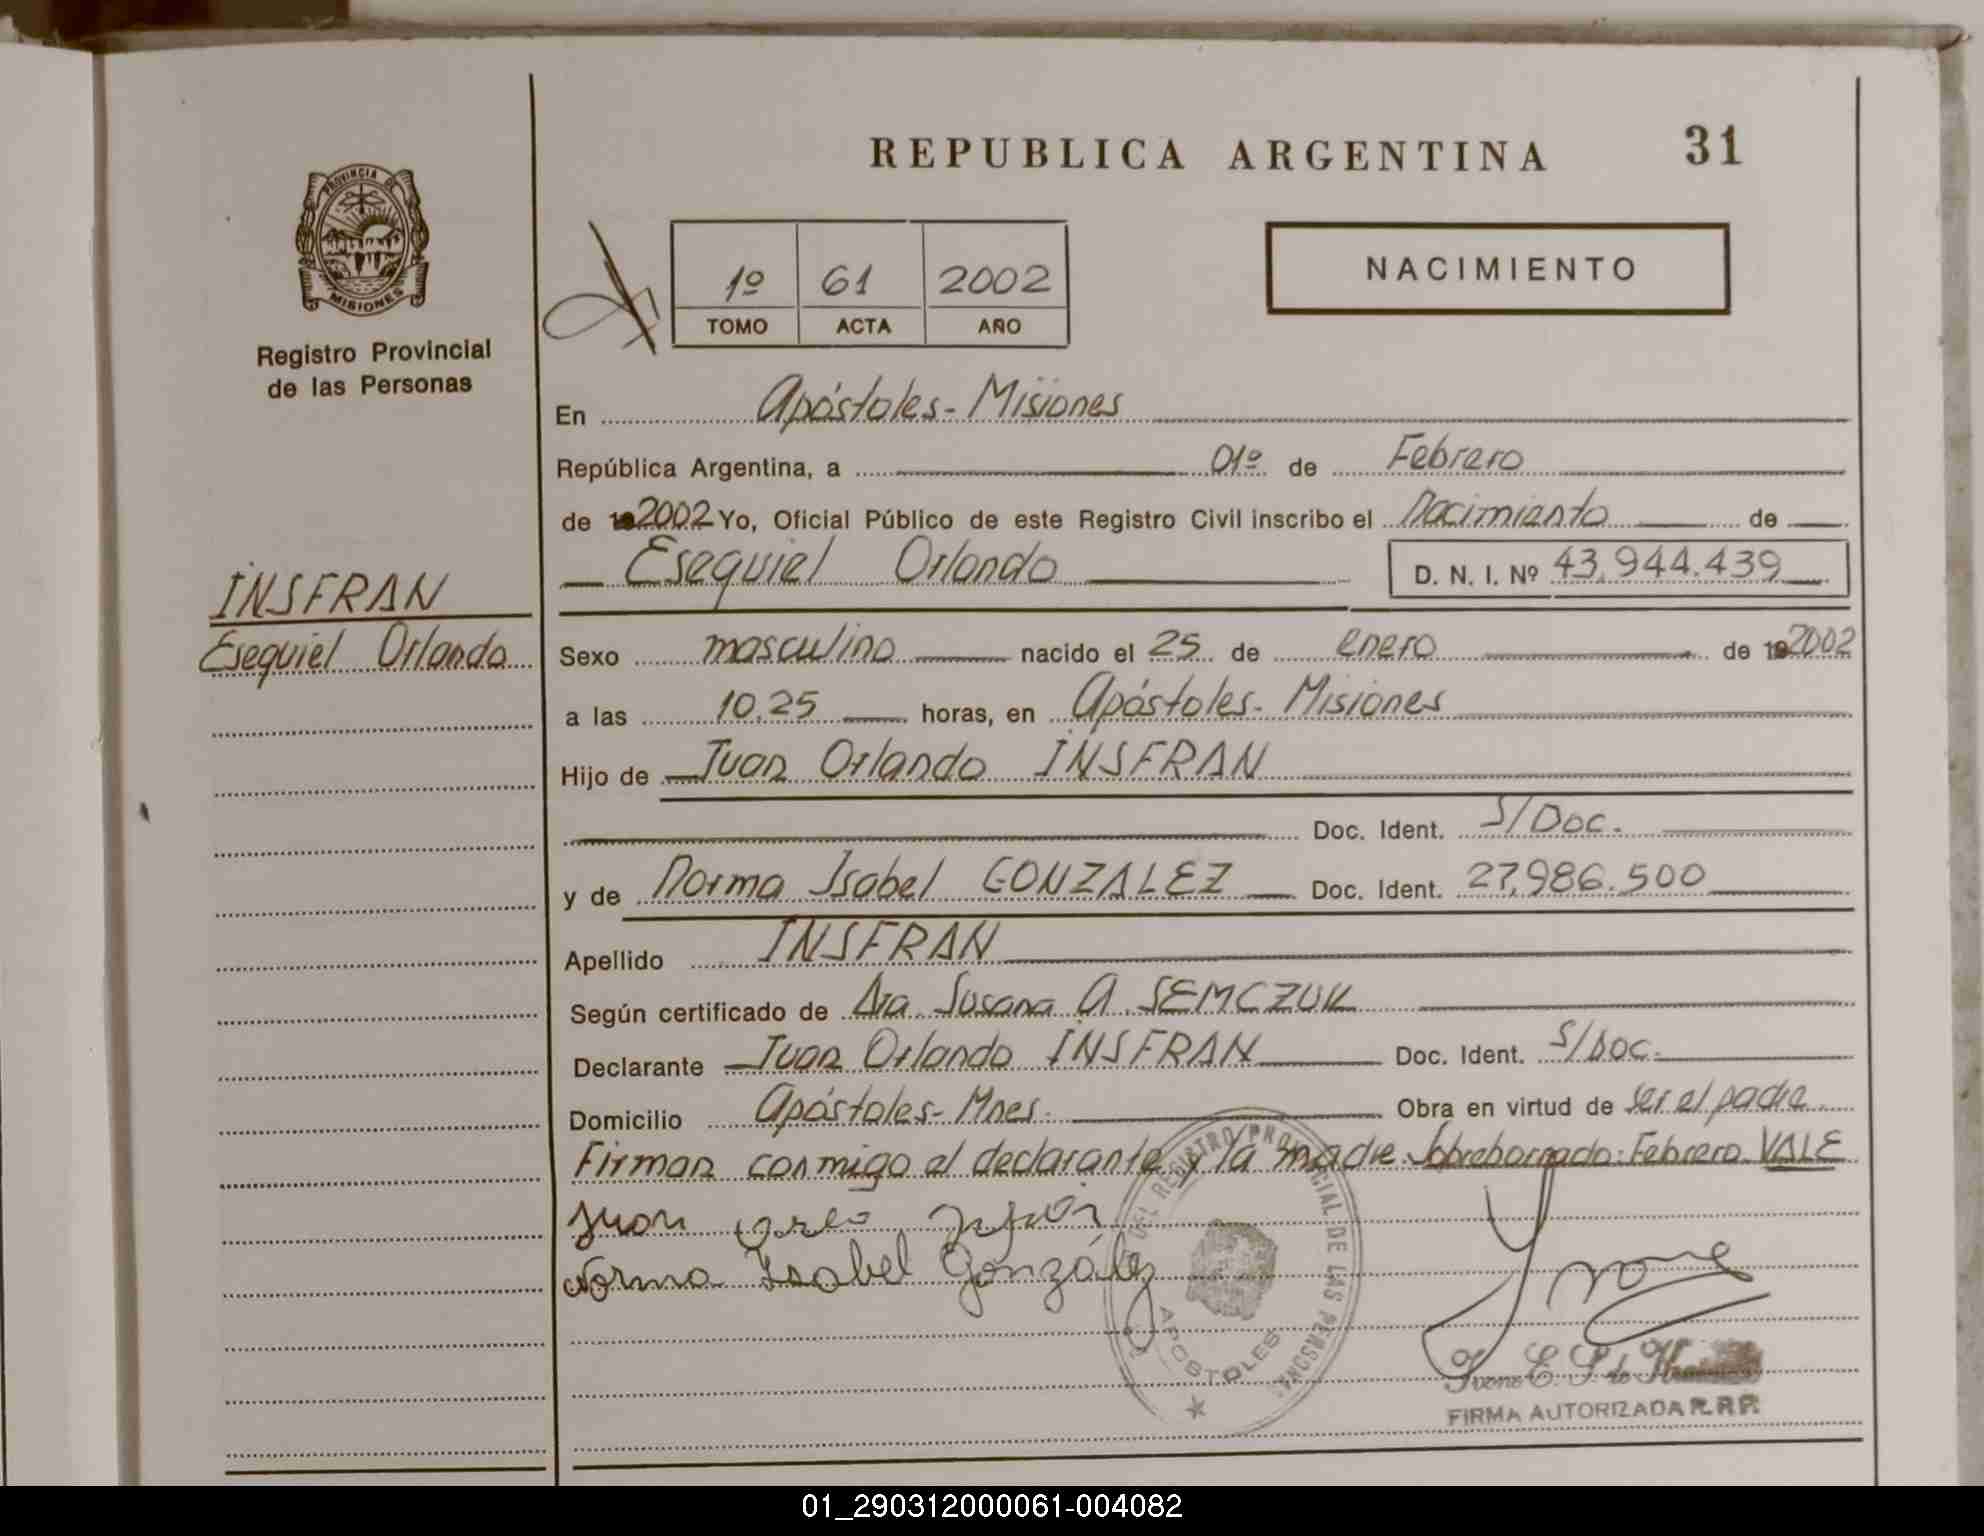 REPUBLICA ARGENTINA 31
PROVINCIA DE
MISIONES
Registro Provincial
de las Personas
1º 61 2002
TOMO ACTA AÑO
NACIMIENTO
En Apóstoles - Misiones
República Argentina, a 01º de Febrero
de 192002 Yo, Oficial Público de este Registro Civil inscribo el Nacimiento de
Esequiel Orlando D. N. I. Nº 43.944.439
INSFRAN
Esequiel Orlando
Sexo masculino nacido el 25 de enero de 192002
a las 10.25 horas, en Apóstoles - Misiones
Hijo de Juan Orlando INSFRAN
Doc. Ident. S/Doc.
y de Norma Isabel GONZALEZ Doc. Ident. 27.986.500
Apellido INSFRAN
Según certificado de Dra. Susana A. SEMCZUK
Declarante Juan Orlando INSFRAN Doc. Ident. S/Doc.
Domicilio Apóstoles - Mnes. Obra en virtud de ser el padre
Firman conmigo el declarante y la madre. Sobreborrado: Febrero. VALE
Juan
Norma Isabel González
DEL REGISTRO PROVINCIAL DE LAS PERSONAS
APOSTOLES
Ivone
Ivone E. S. de
FIRMA AUTORIZADA R.P.P.
01_290312000061-004082